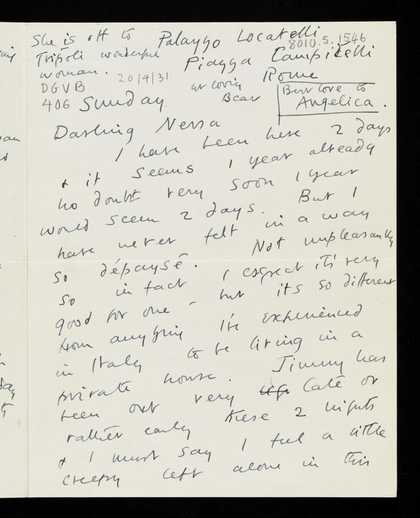 She is off to
Tripoli wonderful
woman.
DGVB
406 Sunday
20/4/31
8010.5.1546
Palazzo Locatelli
Piazza Campitelli
Rome
Bear
Best love to
Angelica.
Darling Nessa
I have been here 2 days
& it seems 1 year already
no doubt very soon 1 year
would seem 2 days. But I
have never felt in a way
so dépaysé. Not unpleasantly
so in fact I expect it's very
good for one – but its so different
from anything I've experienced
in Italy to be living in a
private house. Jimmy has
been out very late or
rather early these 2 nights
& I must say I feel a little
creepy left alone in this